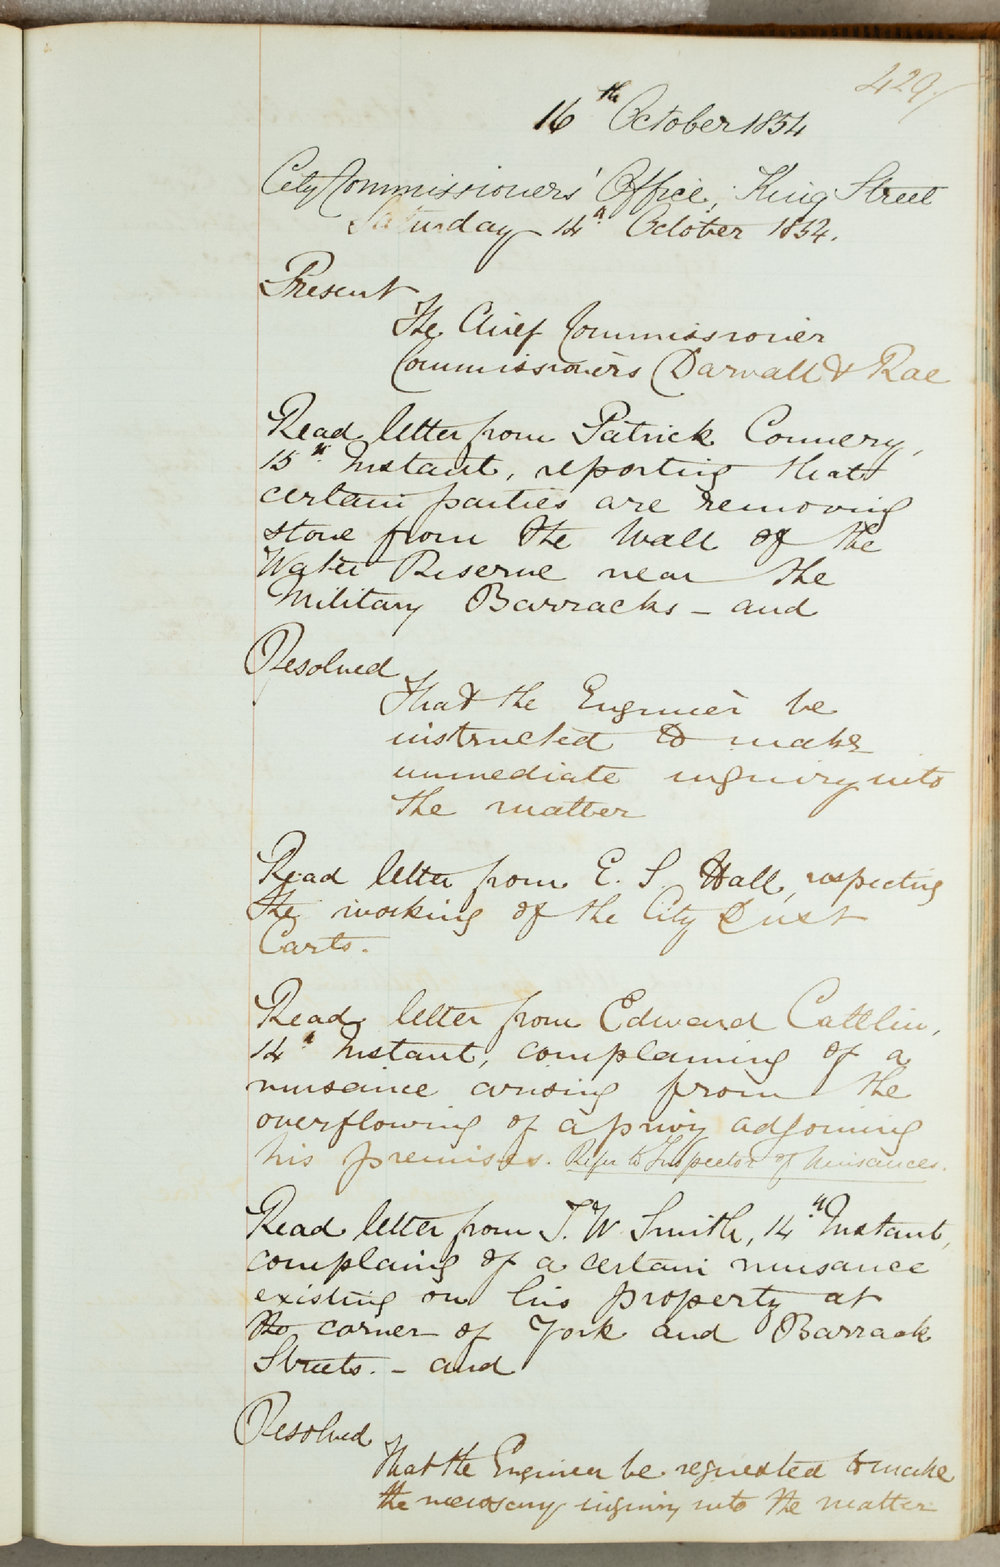 429/
16th October 1854
City Commissioners' Office, King Street
Saturday 14th October 1854.
Present
The Chief Commissioner
Commissioners Darvall & Rae
Read letter from Patrick Connery,
13th Instant, reporting that
certain parties are removing
stone from the Wall of the
Water Reserve near the
Military Barracks - and
Resolved
That the Engineer be
instructed to make
immediate inquiry into
the matter
Read letter from E. S Hall, respecting
the working of the City Dust
Carts.
Read letter from Edward Cattlin,
14th Instant, complaining of a
nuisance arising from the
overflowing of a privy adjoining
his premises. Refer to Inspector of Nuisances.
Read letter from T. W Smith, 14th Instant,
complaing of a certain nuisance
existing on his property at
the corner of York and Barrack
Streets. - and
Resolved
That the Engineer be requested to make
the necessary inquiry into the matter